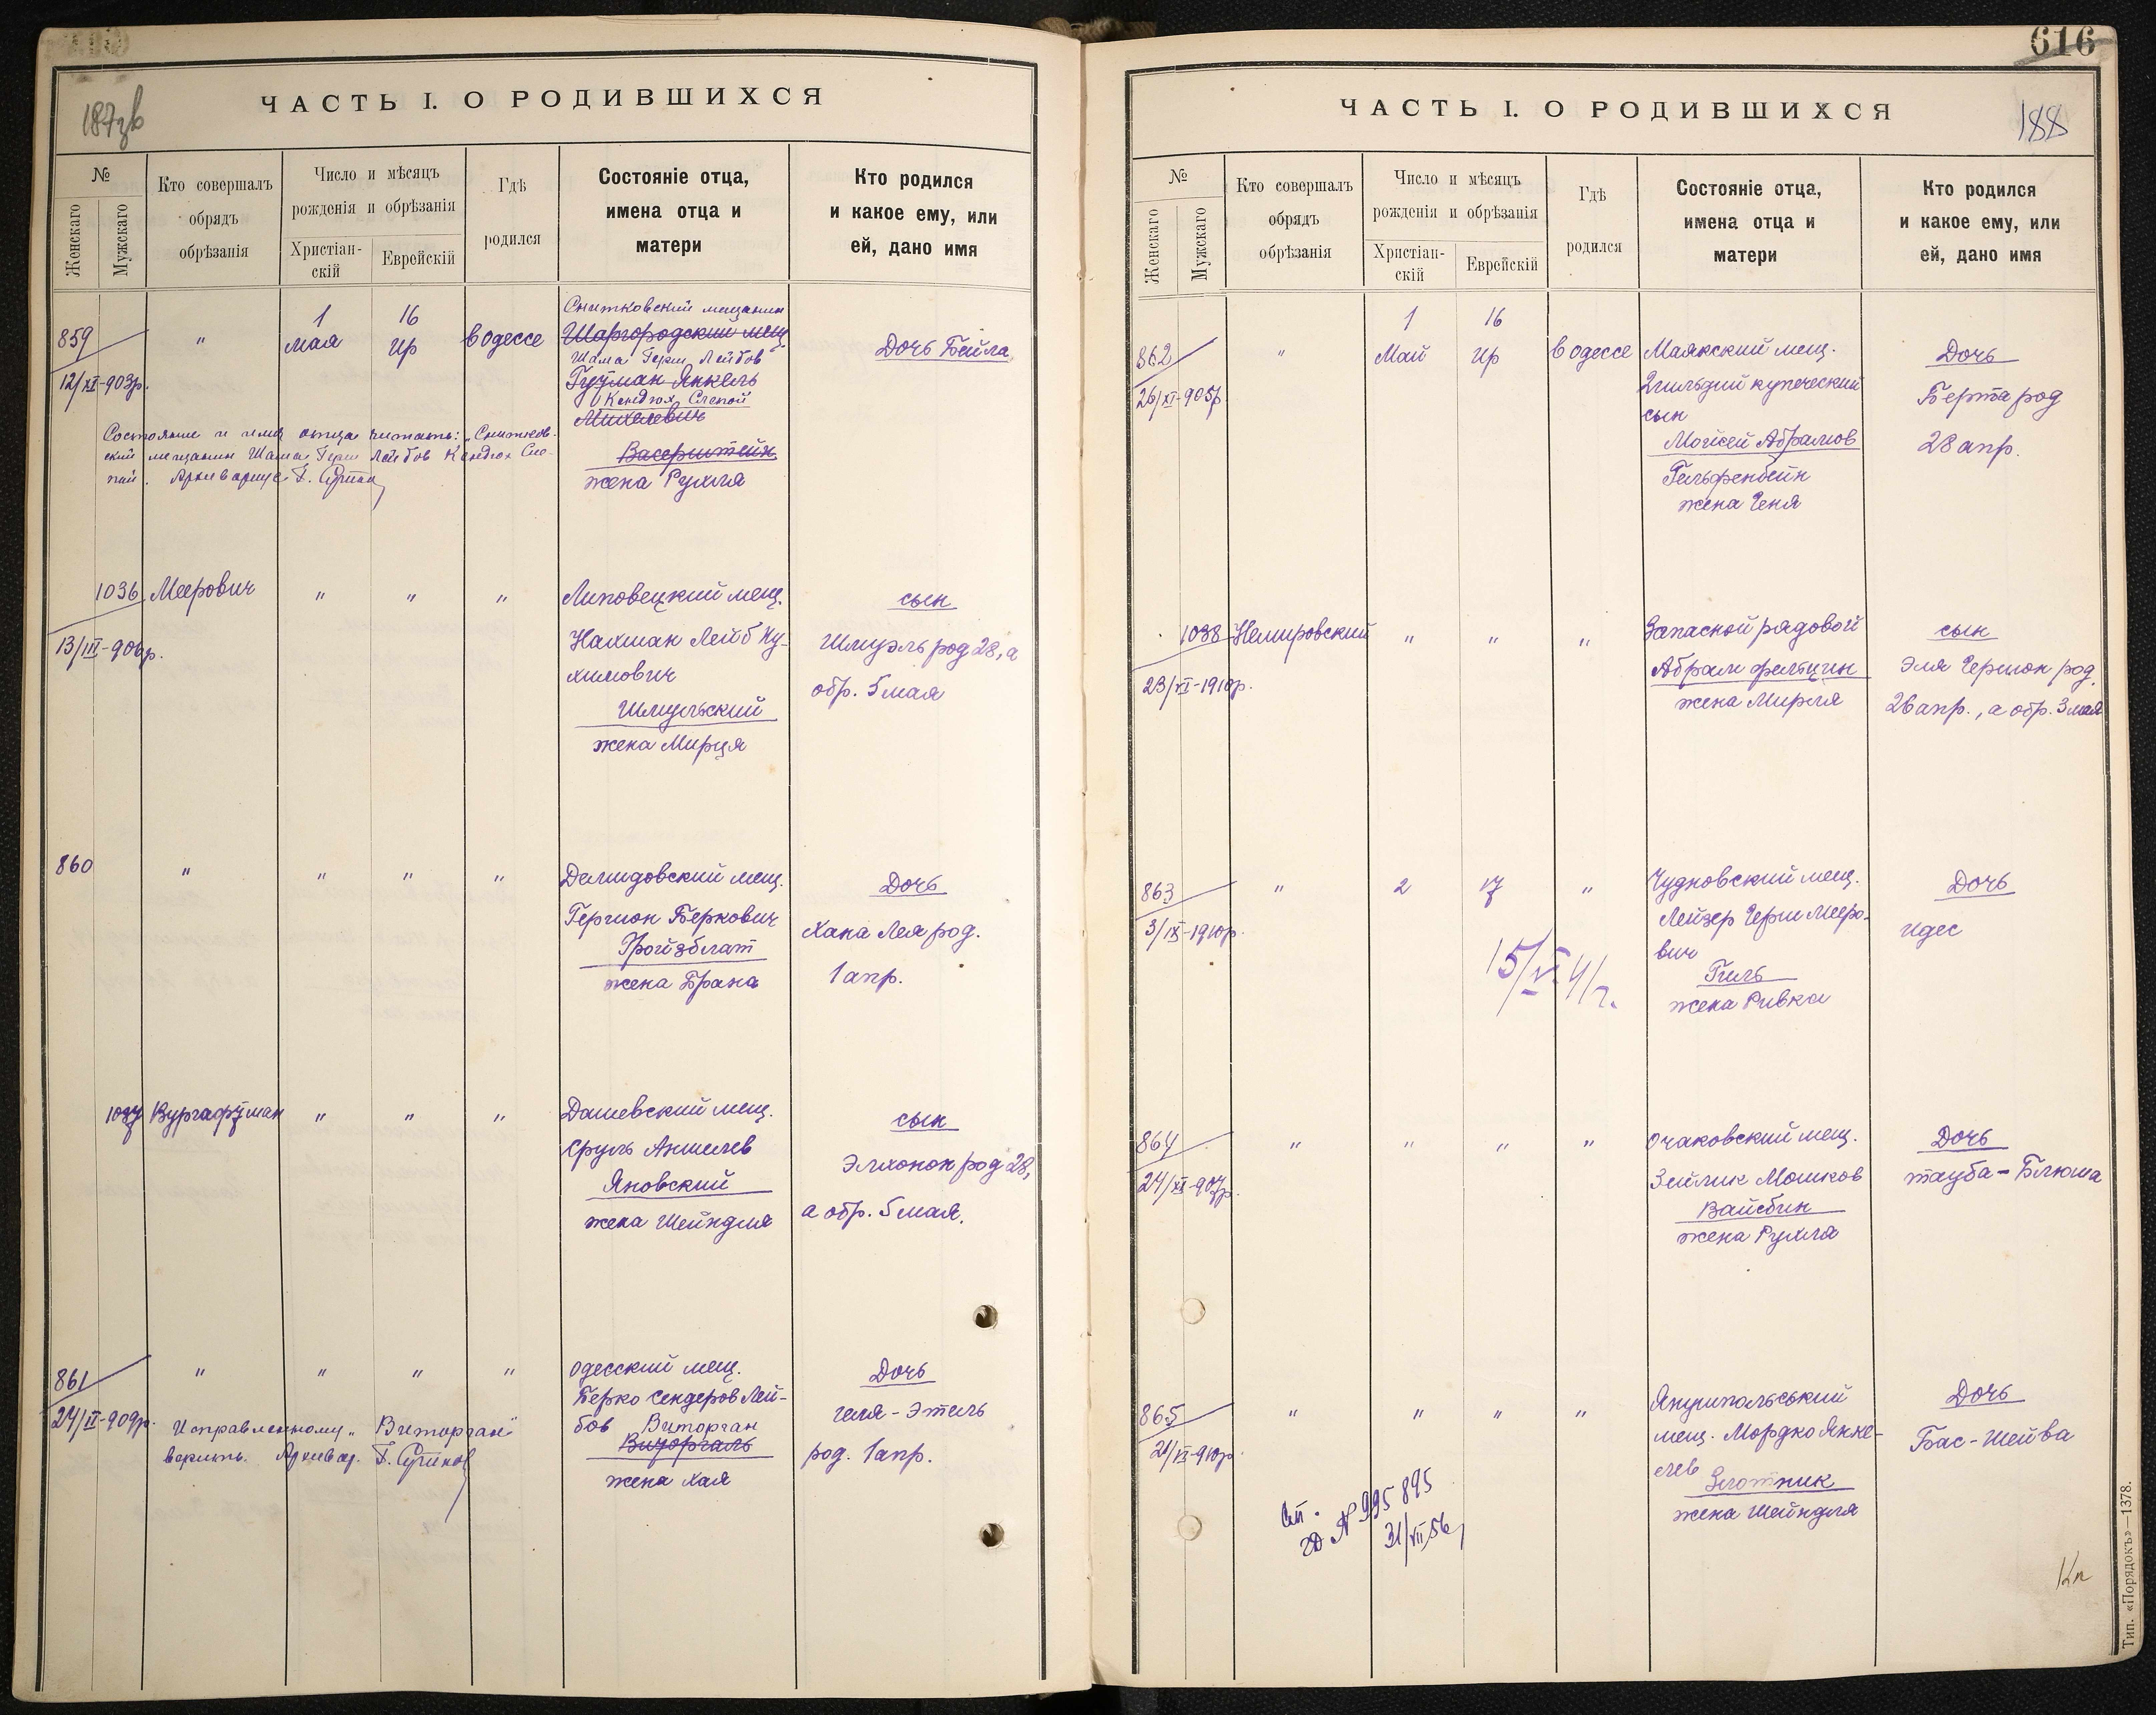 187зв
ЧАСТЬ I. О РОДИВШИХСЯ
№
Женскаго
Мужскаго
Кто совершалъ
обрядъ
обрѣзанія
Число и мѣсяцъ
рожденія и обрѣзанія
Христіан-
скій
Еврейскій
Гдѣ
родился
Состояніе отца,
имена отца и
матери
Кто родился
и какое ему, или
ей, дано имя
859
12/XI-903р.
"
1
мая
16
Ир
в Одессе
Снитковский мещанин
Шаргородский мещ.
Шама Герш Лейбов
Гузман Янкель
Кендюх Слепой
Михелевич
Васерштейн
жена Рухля
Дочь Бейла
Состояние и имя отца читать: „Снитков-
ский мещанин Шама Герш Лейбов Кендюх Сле-
пой. Архивариус Г.
1036
13/III-906р.
Меерович
"
"
"
Липовецкий мещ.
Нахман Лейб Ну-
химович
Шмульский
жена Мирця
сын
Шмуэль род 28, а
обр. 5 мая
860
"
"
"
"
Демидовский мещ.
Гершон Беркович
Гройзблат
жена Брана
Дочь
Хана Лея род.
1 апр.
1037
Вургафтман
"
"
"
Дашевский мещ.
Сруль Аншелев
Яновский
жена Шейндля
сын
Элхонон род 28,
а обр. 5 мая.
861
24/II-909р.
"
"
"
"
Одесский мещ.
Берко Сендеров Лей-
бов Виторган
Виторгаль
жена Хая
Дочь
Геля-Этель
род. 1 апр.
Исправленному „Виторган"
верить. Архивар. Г.
616
188
ЧАСТЬ I. О РОДИВШИХСЯ
№
Женскаго
Мужскаго
Кто совершалъ
обрядъ
обрѣзанія
Число и мѣсяцъ
рожденія и обрѣзанія
Христіан-
скій
Еврейскій
Гдѣ
родился
Состояніе отца,
имена отца и
матери
Кто родился
и какое ему, или
ей, дано имя
862
26/XI-905р
"
1
Май
16
Ир
в Одессе
Маякский мещ.
2 гильдии купеческий
сын
Мойсей Абрамов
Гельфенбейн
жена Геня
Дочь
Берта род
28 апр.
1038
23/VI-1910р.
Немировский
"
"
"
Запасной рядовой
Абрам Фельцин
жена Мирля
сын
Эля Гершон род.
26 апр., а обр. 3 мая
863
3/IX-1910р.
"
2
17
"
15/VI 41 г.
Чудновский мещ.
Лейзер Герш Мееро-
вич
Гиль
жена Ривка
Дочь
Идес
864
24/XI-907р.
"
"
"
"
Очаковский мещ.
Зейлик Мошков
Вайсбин
жена Рухля
Дочь
Тауба-Блюма
865
21/VI-910р
"
"
"
"
Янушпольський
мещ. Мордко Янке-
лев
Злотник
жена Шейндля
Дочь
Бас-Шейва
№ 995895
31/VII 56
Тип. «Порядокъ»—1378.